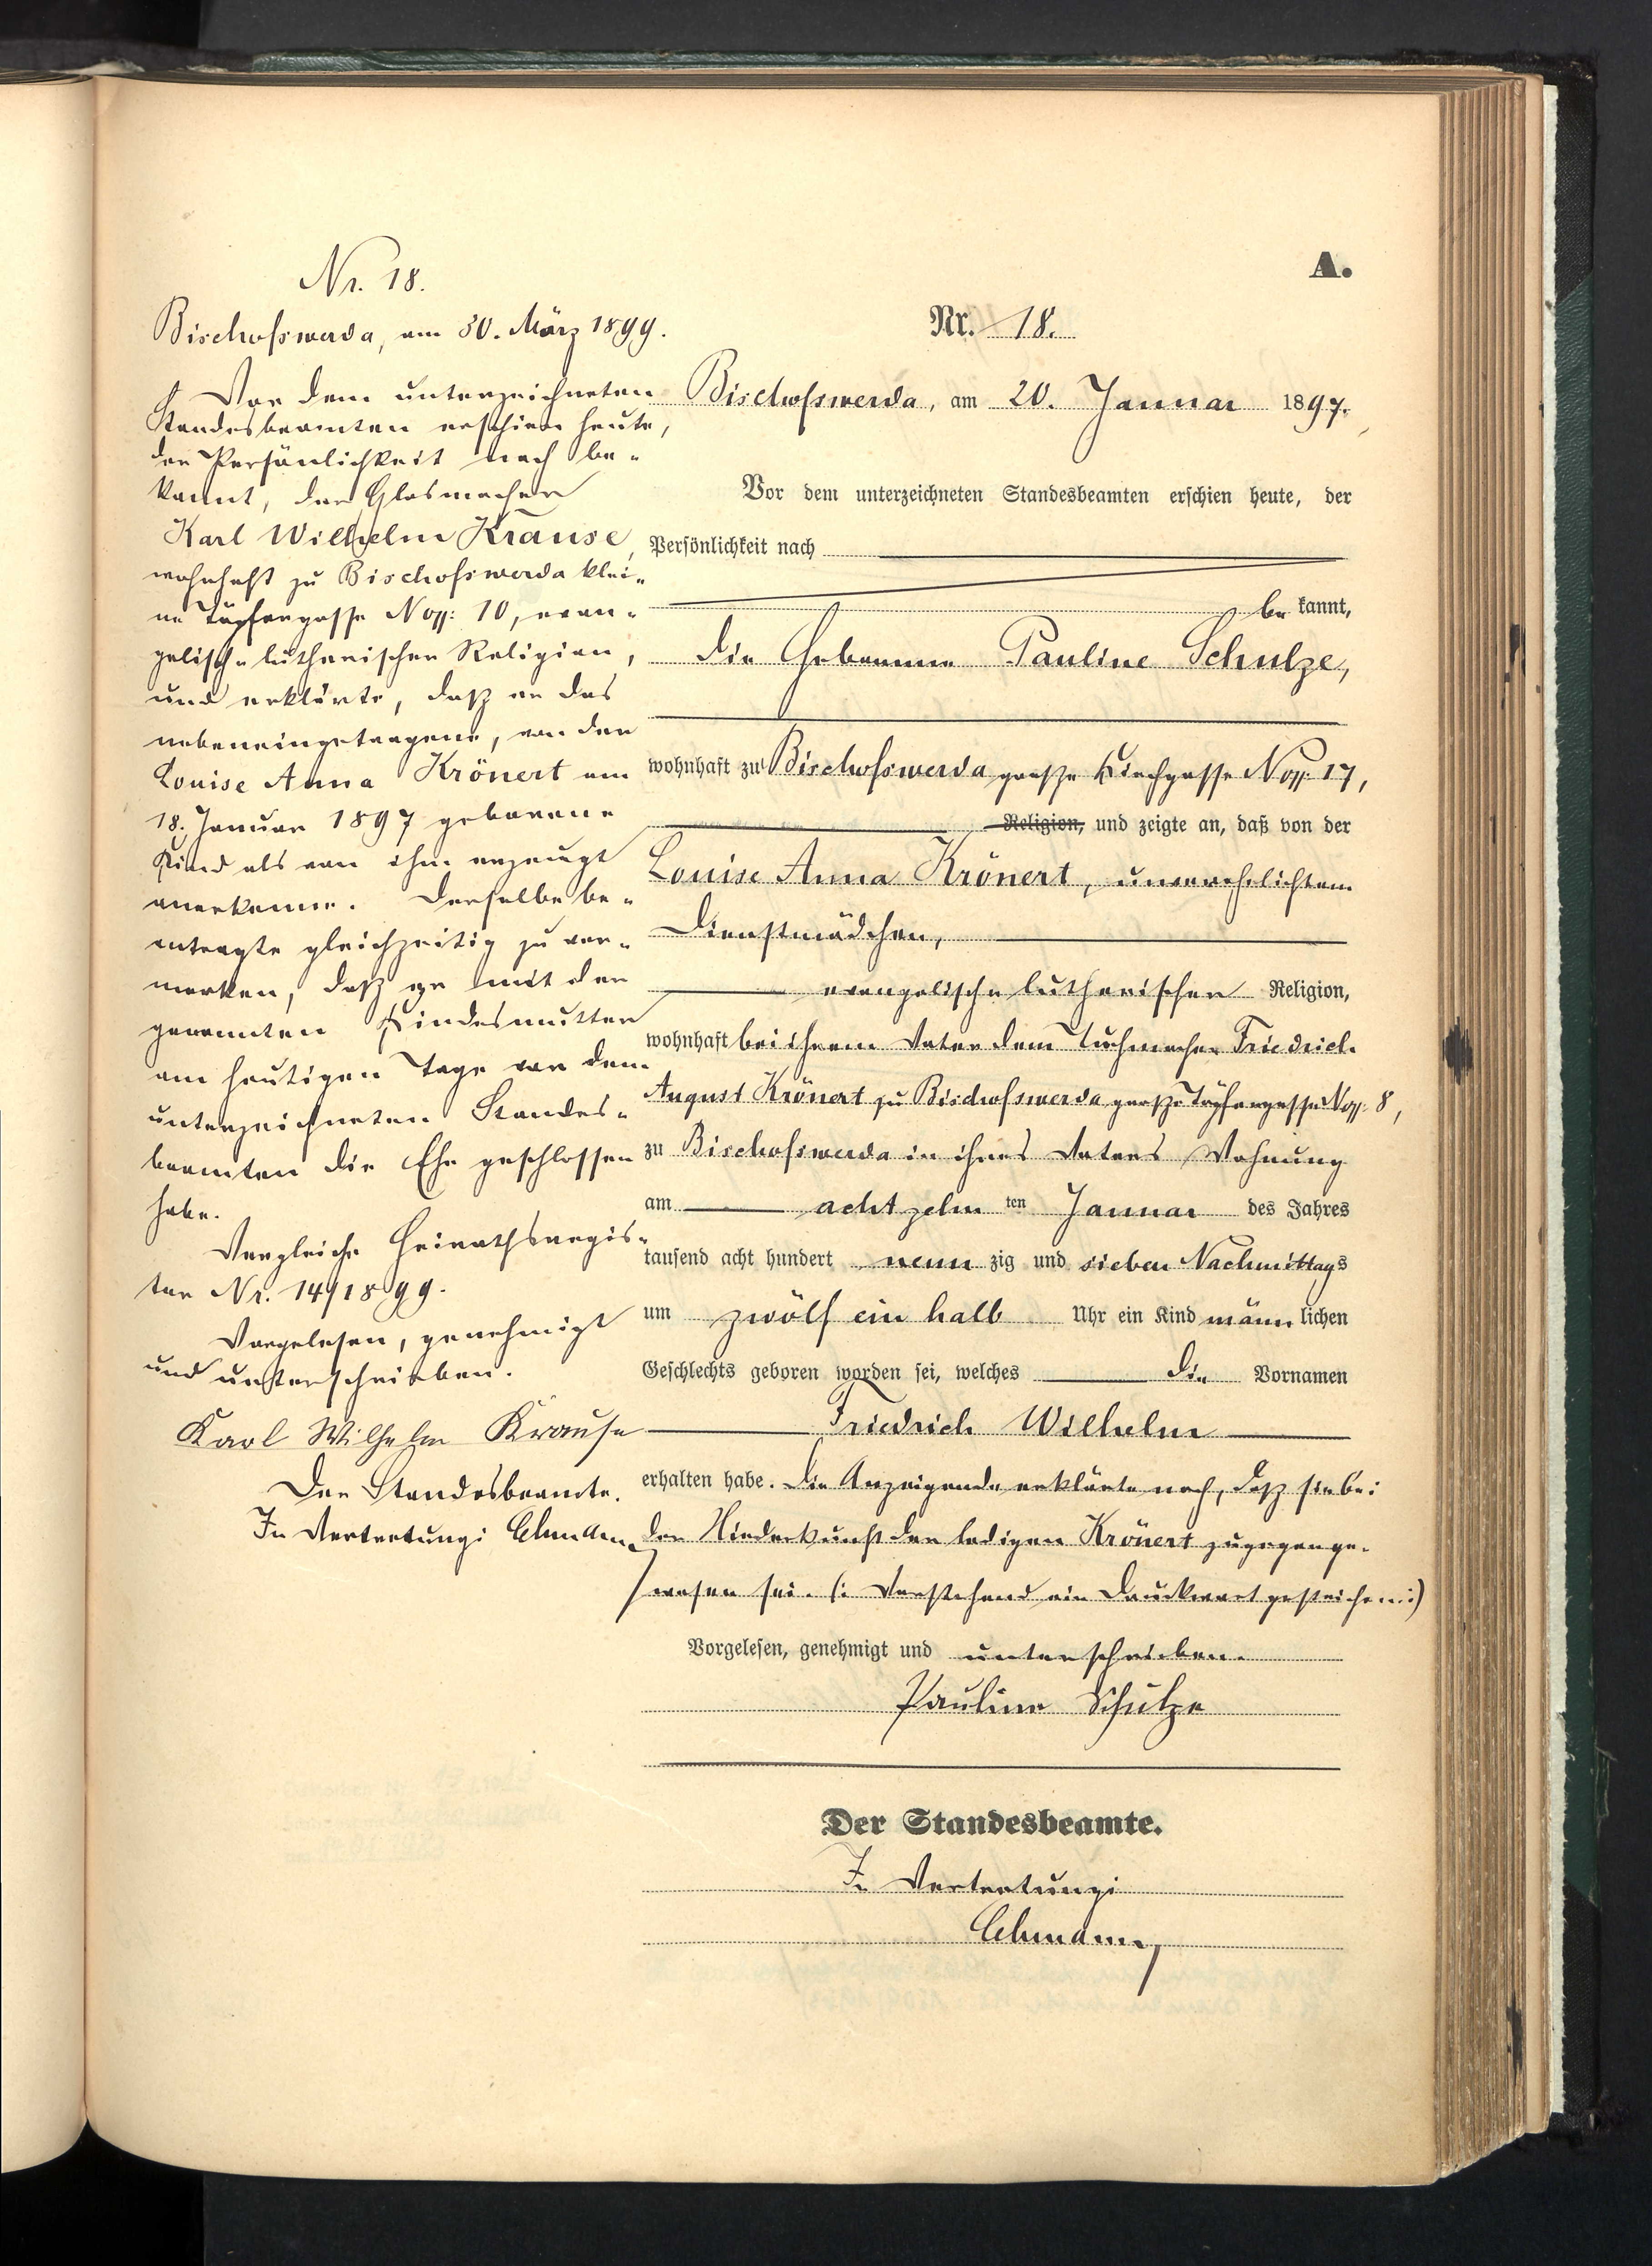 Nr. 18.
Bischofswerda, am 30. März 1899.
Vor dem unterzeichneten
Standesbeamten erschien heute,
der Persönlichkeit nach be-
kannt, der Glasmacher
Karl Wilhelm Krause,
wohnhaft zu Bischofswerda klei-
ne Töpfergasse No: 10, evan-
gelisch-lutherischer Religion,
und erklärte, daß er das
nebeneingetragene, von der
Louise Anna Krönert am
18. Januar 1897 geborene
Kind als von ihm erzeugt
anerkenne. Derselbe be-
antragte gleichzeitig zu ver-
merken, daß er mit der
genannten Kindesmutter
am heutigen Tage vor dem
unterzeichneten Standes-
beamten die Ehe geschlossen
habe.
Vergleiche Heirathsregis-
ter Nr. 14/1899.
Vorgelesen, genehmigt
und unterschrieben.
Karl Wilhelm Krause
Der Standesbeamte.
In Vertretung: Lehmann
A.
Nr. 18.
Bischofswerda, am 20. Januar 1897.
Vor dem unterzeichneten Standesbeamten erschien heute, der
Persönlichkeit nach
be kannt,
die Hebamme Pauline Schulze,
wohnhaft zu Bischofswerda große Kirchgasse No: 17,
Religion, und zeigte an, daß von der
Louise Anna Krönert, unverehelichtem
Dienstmädchen,
evangelisch-lutherischer Religion,
wohnhaft bei ihrem Vater dem Tuchmacher Friedrich
August Krönert zu Bischofswerda große Töpfergasse No: 8,
zu Bischofswerda in ihres Vaters Wohnung
am achtzehn ten Januar des Jahres
tausend acht hundert neun zig und sieben Nachmittags
um zwölf ein halb Uhr ein Kind männ lichen
Geschlechts geboren worden sei, welches die Vornamen
Friedrich Wilhelm
erhalten habe. Die Anzeigende erklärte noch, daß sie bei
der Niederkunft der ledigen Krönert zugegen ge-
wesen sei. (: Vorstehend ein Druckwort gestrichen :)
Vorgelesen, genehmigt und unterschrieben.
Pauline Schulze
Der Standesbeamte.
In Vertretung:
Lehmann